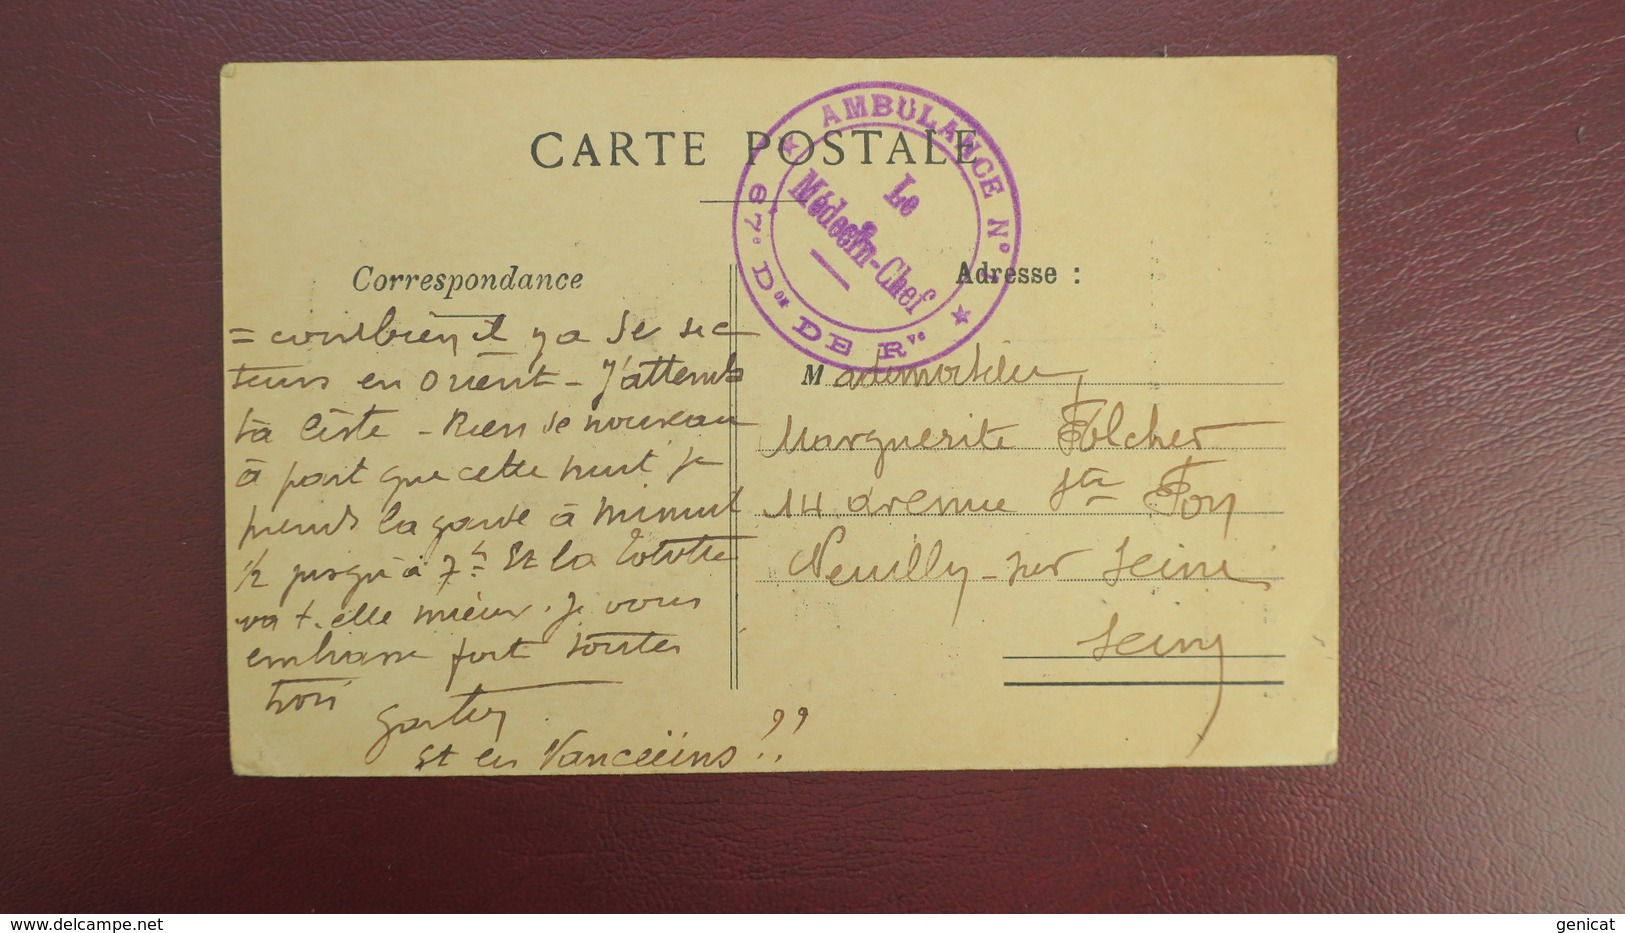 CARTE POSTALE
AMBULANCE N°
67e Don DE Rve
Le
Médecin-Chef
Correspondance
Adresse :
= combien il y a de sec
teurs en Orient - J'attends
ta liste - Rien de nouveau
à part que cette nuit je
prends la garde à minuit
1/2 jusqu'à 7h Et la
va t-elle mieux. Je vous
embrasse fort toutes
trois
Et les ??
Mademoiselle
Marguerite
14 avenue Ste Foy
Neuilly-sur Seine
Seine
delcampe.net
genicat